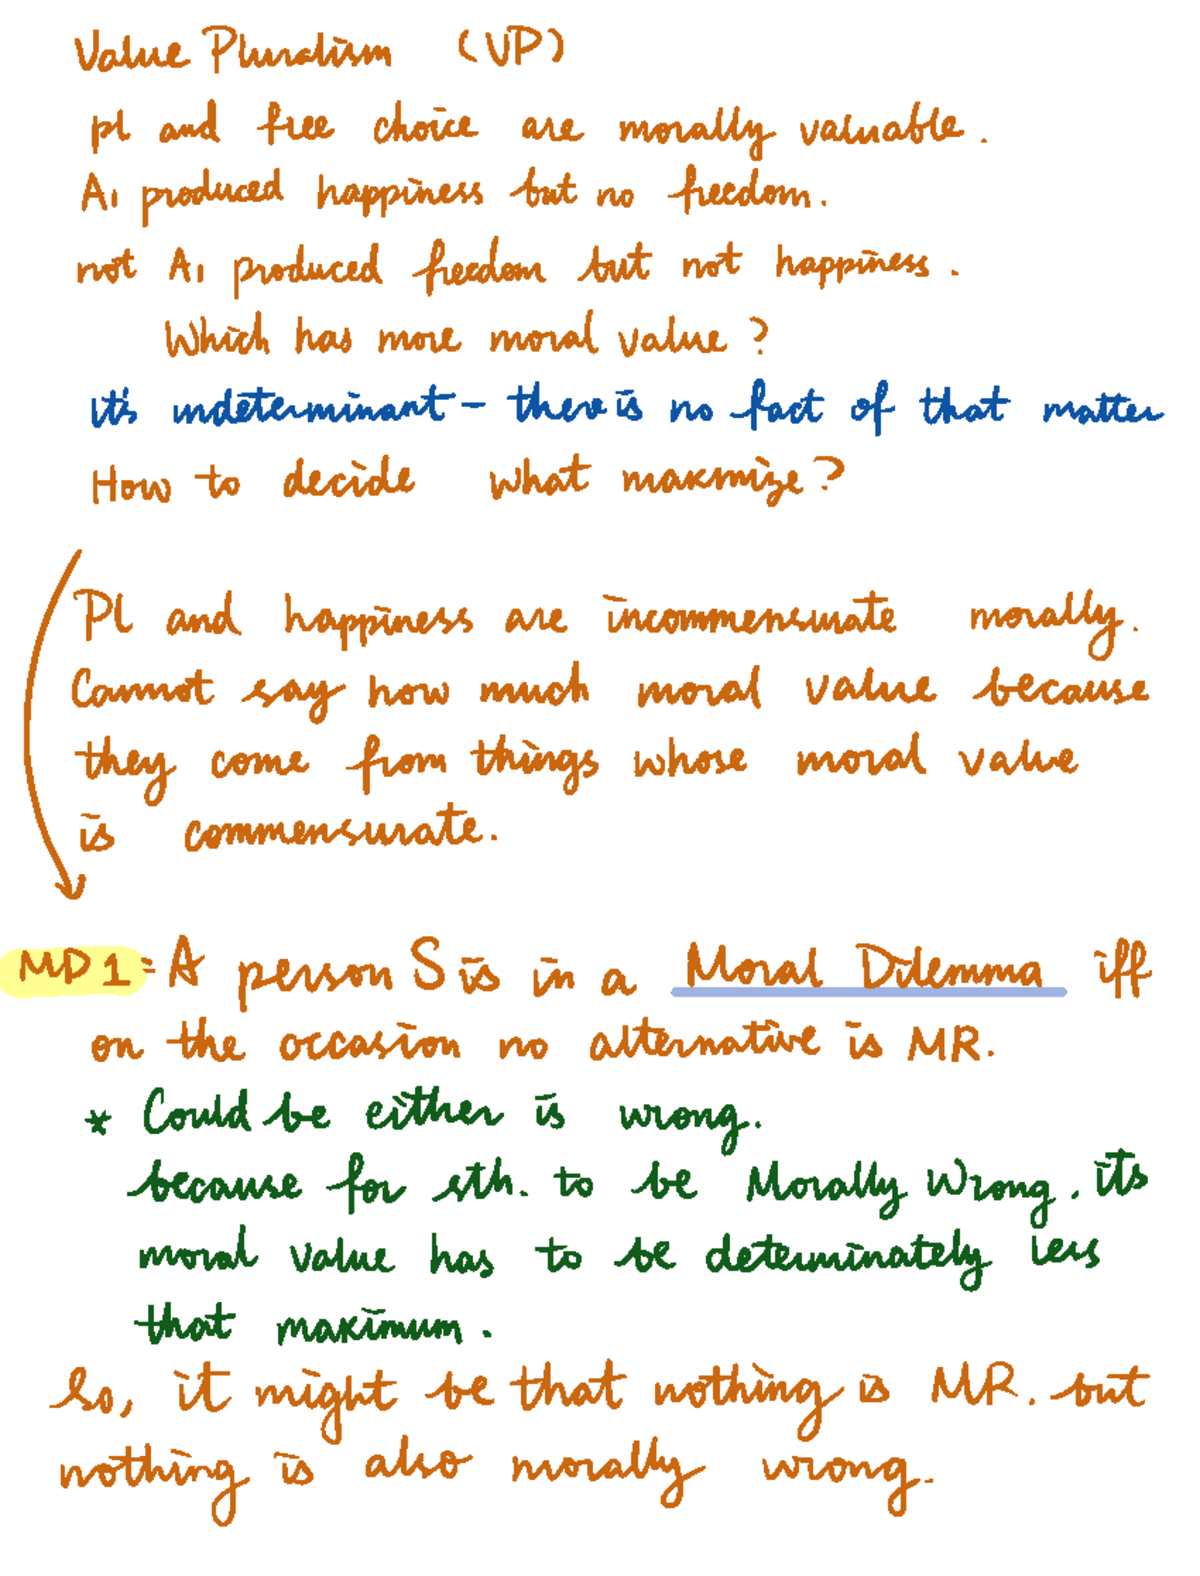 Value Pluralism (VP)
pl and free choice are morally valuable.
A1 produced happiness but no freedom.
not A1 produced freedom but not happiness.
Which has more moral value?
it's indeterminant - there is no fact of that matter
How to decide what maxmize?
Pl and happiness are incommensurate morally.
Cannot say how much moral value because
they come from things whose moral value
is commensurate.
MD1 = A person S is in a Moral Dilemma iff
on the occasion no alternative is MR.
* Could be either is wrong.
because for sth. to be Morally Wrong, its
moral value has to be determinately less
that maximum.
So, it might be that nothing is MR. but
nothing is also morally wrong.